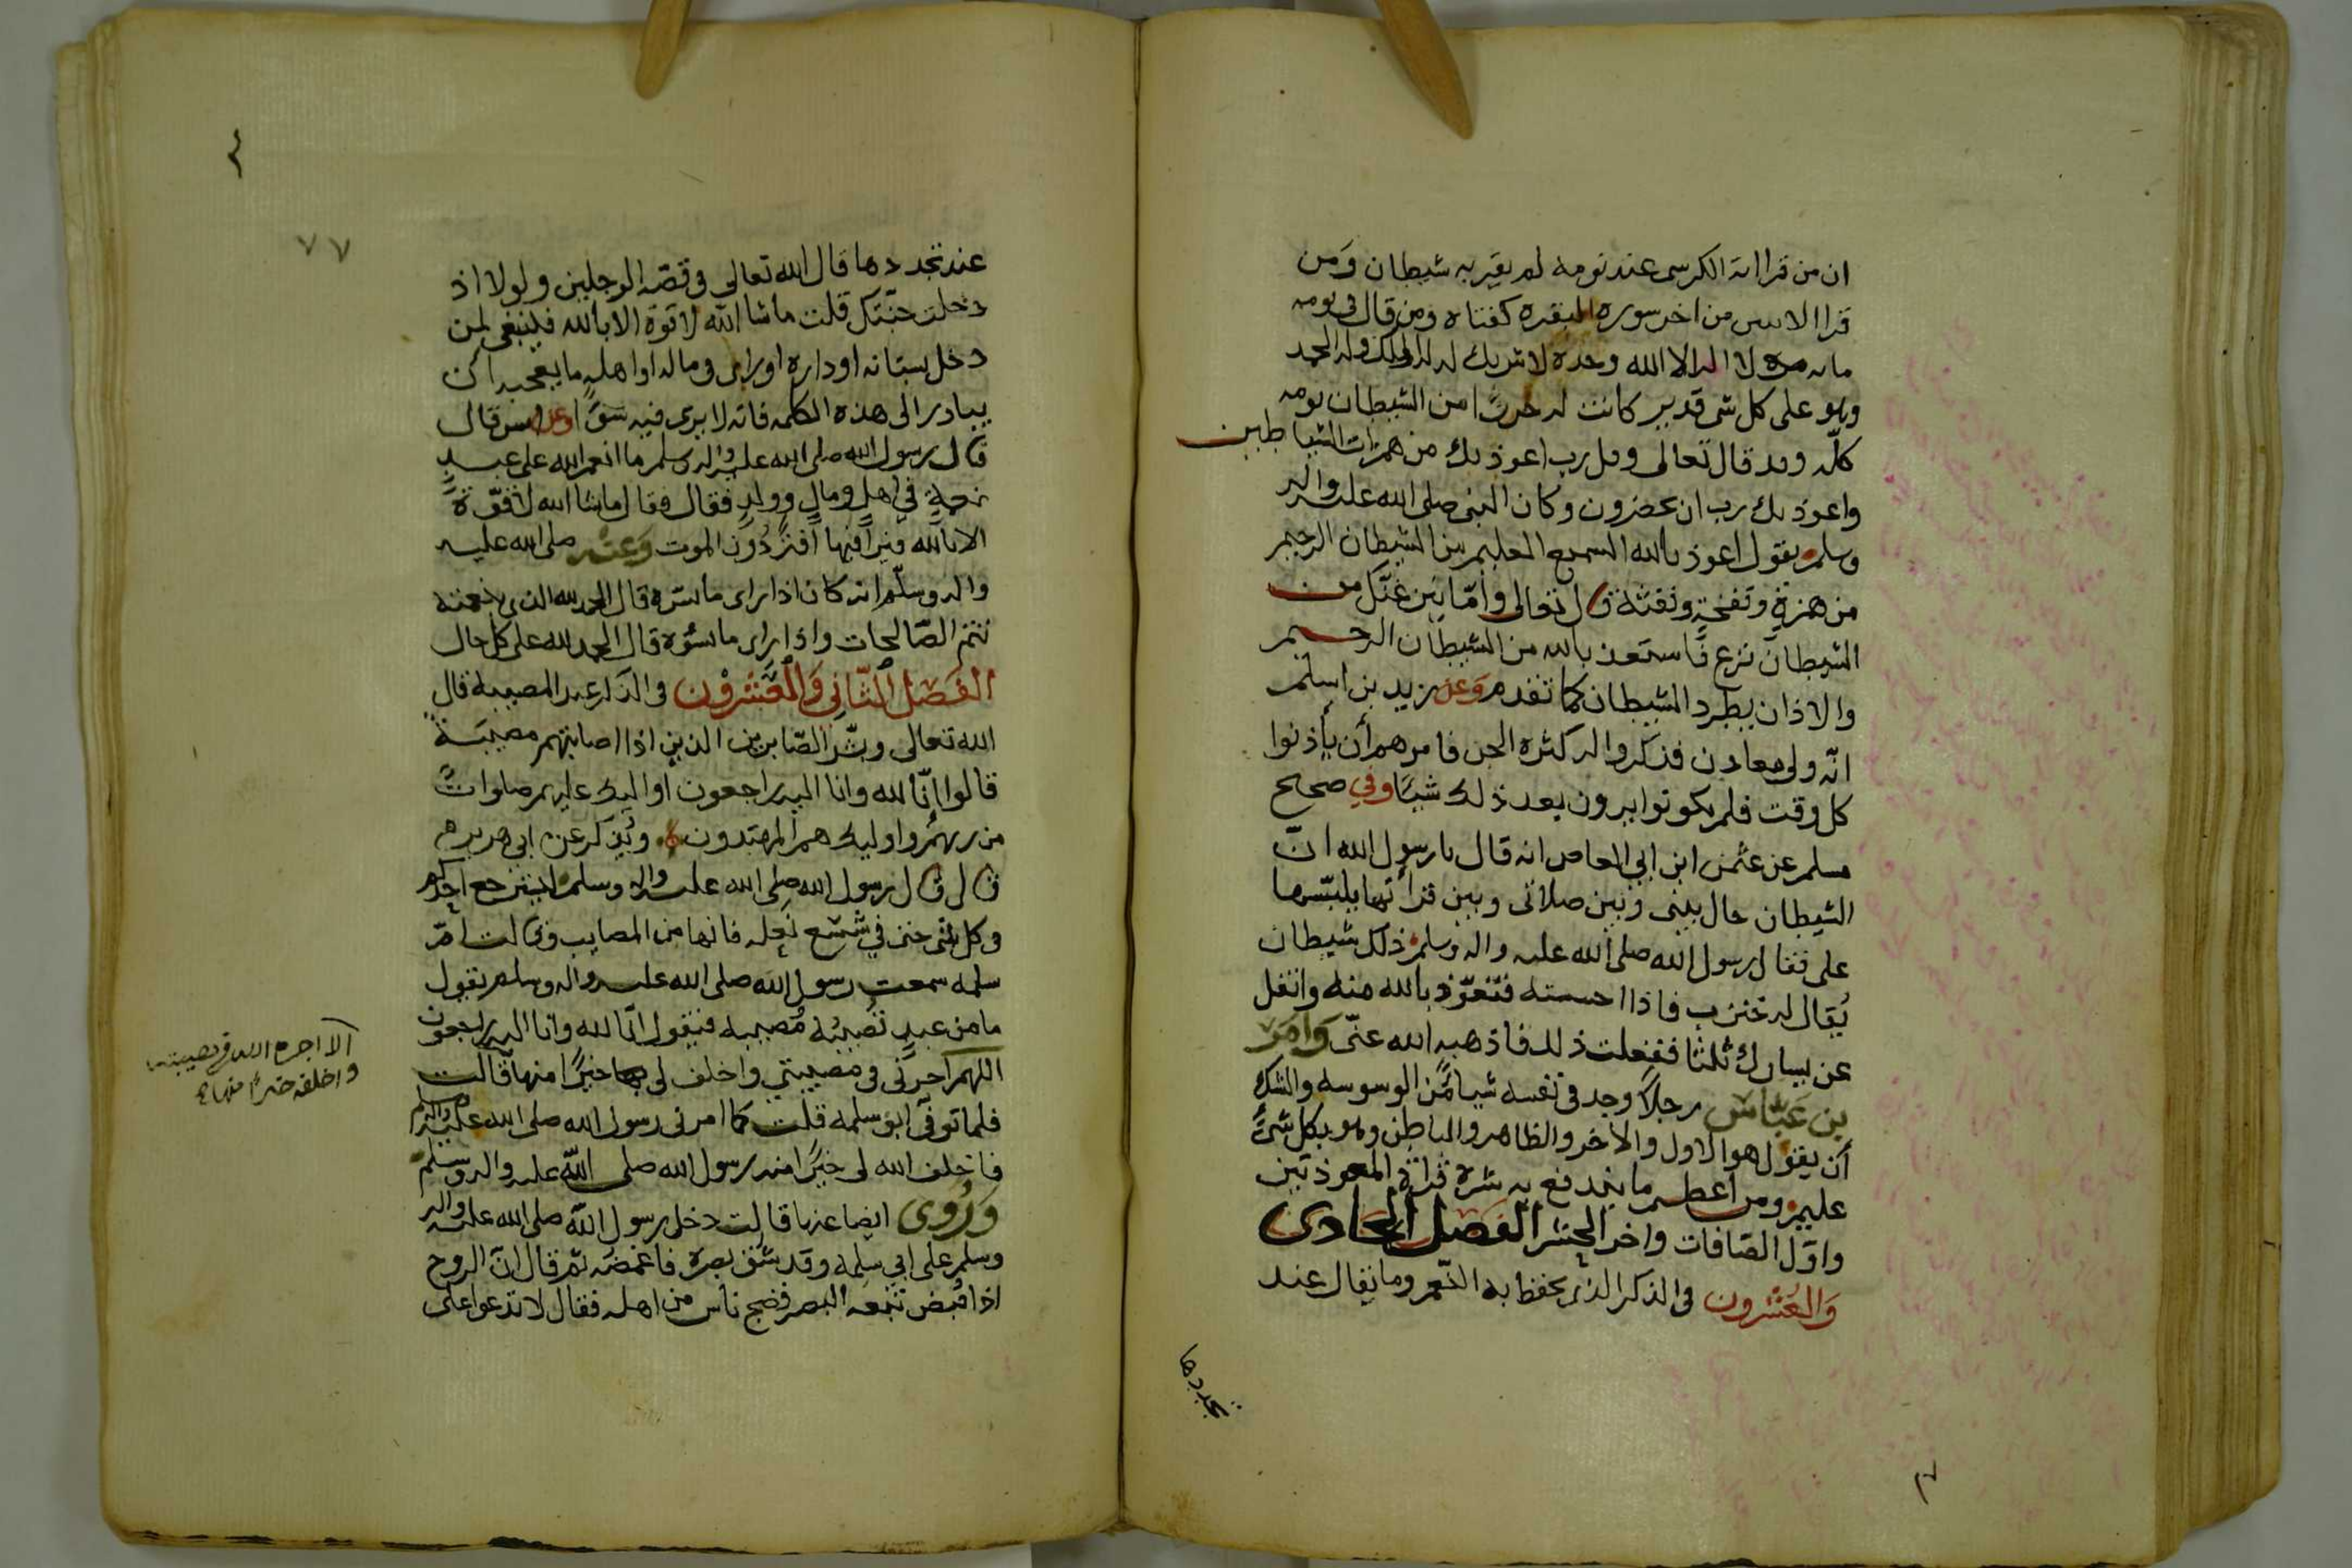 ان من قرا اية الكرسى عند نومه لم يقربه شيطان ومن
قرا الايتين من اخر سورة البقره كفتاه ومن قال فى يومه
مايه مرة لا اله الا الله وحده لا شريك له له الملك وله الحمد
وهو على كل شى قدير كانت له حرزًا من الشيطان يومه
كلّه وقد قال تعالى وقل رب اعوذ بك من همزات الشياطين
واعوذ بك رب ان يحضرون وكان النبى صلى الله عليه واله
وسلم يقول اعوذ بالله السميع العليم من الشيطان الرجيم
من همزه ونفخه ونفثه قال تعالى وامّا ينزغنّك من
الشيطان نزغ فاستعذ بالله من الشيطان الرجيم
والاذان يطرد الشيطان كما تقدم وعن زيد بن اسلم
انّه ولى معادن فذكروا له كثرة الجن فامرهم أن يأذنوا
كل وقت فلم يكونوا يرون بعد ذلك شيئا وفي صحيح
مسلم عن عثمن ابن ابي العاص انه قال يا رسول الله انّ
الشيطان حال بينى وبين صلاتى وبين قرأتها يلبّسها
على فقال رسول الله صلى الله عليه واله وسلم ذلك شيطان
يُقال له خنزب فاذا احسسته فتعوّذ بالله منه واتفل
عن يسارك ثلثا ففعلت ذلك فاذهبه الله عنّى وامر
بن عبّاس رجلاً وجد فى نفسه شيئا من الوسوسه والشك
أن يقول هو الاول والاخر والظاهر والباطن وهو بكل شئ
عليم ومن اعظم ما يندفع به شره قراة المعوذتين
واوّل الصّافات واخر الحشر الفصل الحادى
والعشرون فى الذكر الذى يحفظ به النّعم وما يقال عند
تجددها
٧٧
عند تجددها قال الله تعالى فى قصّة الرجلين ولولا اذ
دخلت جنّتك قلت ما شا الله لا قوّة الا بالله فينبغى لمن
دخل بستانه او داره او راى فى ماله او اهله ما يعجبه أن
يبادر الى هذه الكلمه فانه لا يرى فيه سوًا وعن انس قال
قال رسول الله صلى الله عليه واله وسلم ما انعم الله على عبدٍ
نعمةٍ في اهلٍ ومالٍ وولدٍ فقال فقال ما شا الله لا قوّة
الا بالله فيرا فيها افةً دُون الموت وعنه صلى الله عليه
واله وسلّم انه كان اذا راى ما يسّره قال الحمد لله الذى بنعمته
تتم الصّالحات واذا راى ما يسُوه قال الحمد لله على كل حال
الفصل الثّانِي والعشرون فى الذكر عند المصيبة قال
الله تعالى وبشّر الصّابرين الذين اذا اصابتهم مصيبةٌ
قالوا إنّا لله وانا اليه راجعون اوليك عليهم صلواتٌ
من ربهم واوليك هم المهتدون ويُذكر عن ابى هريره
قال قال رسول الله صلى الله عليه واله وسلم ليسترجع احدكم
فى كل شى حتى في شسع نعله فانها من المصايب وقالت امّ
سلمه سمعت رسول الله صلى الله عليه واله وسلم يقول
ما من عبدٍ تصيبُه مُصيبة فيقول انّا لله وانا اليه راجعون
اللهم اجرنى فى مصيبتي واخلف لى خيرًا منها قالت
فلما توفّى ابو سلمه قلت كما امرنى رسول الله صلى الله عليه واله وسلم
فاخلف الله لى خيرًا منه رسول الله صلى الله عليه واله وسلم
ورُوى ايضا عنها قالت دخل رسول الله صلى الله عليه واله
وسلم على ابي سلمه وقد شق بصره فاغمضه ثم قال انّ الروح
اذا قُبض تبعه البصر فضج ناس من اهله فقال لا تدعوا على
الا اجره الله فى مصيبته
واخلفه خيرًا منها